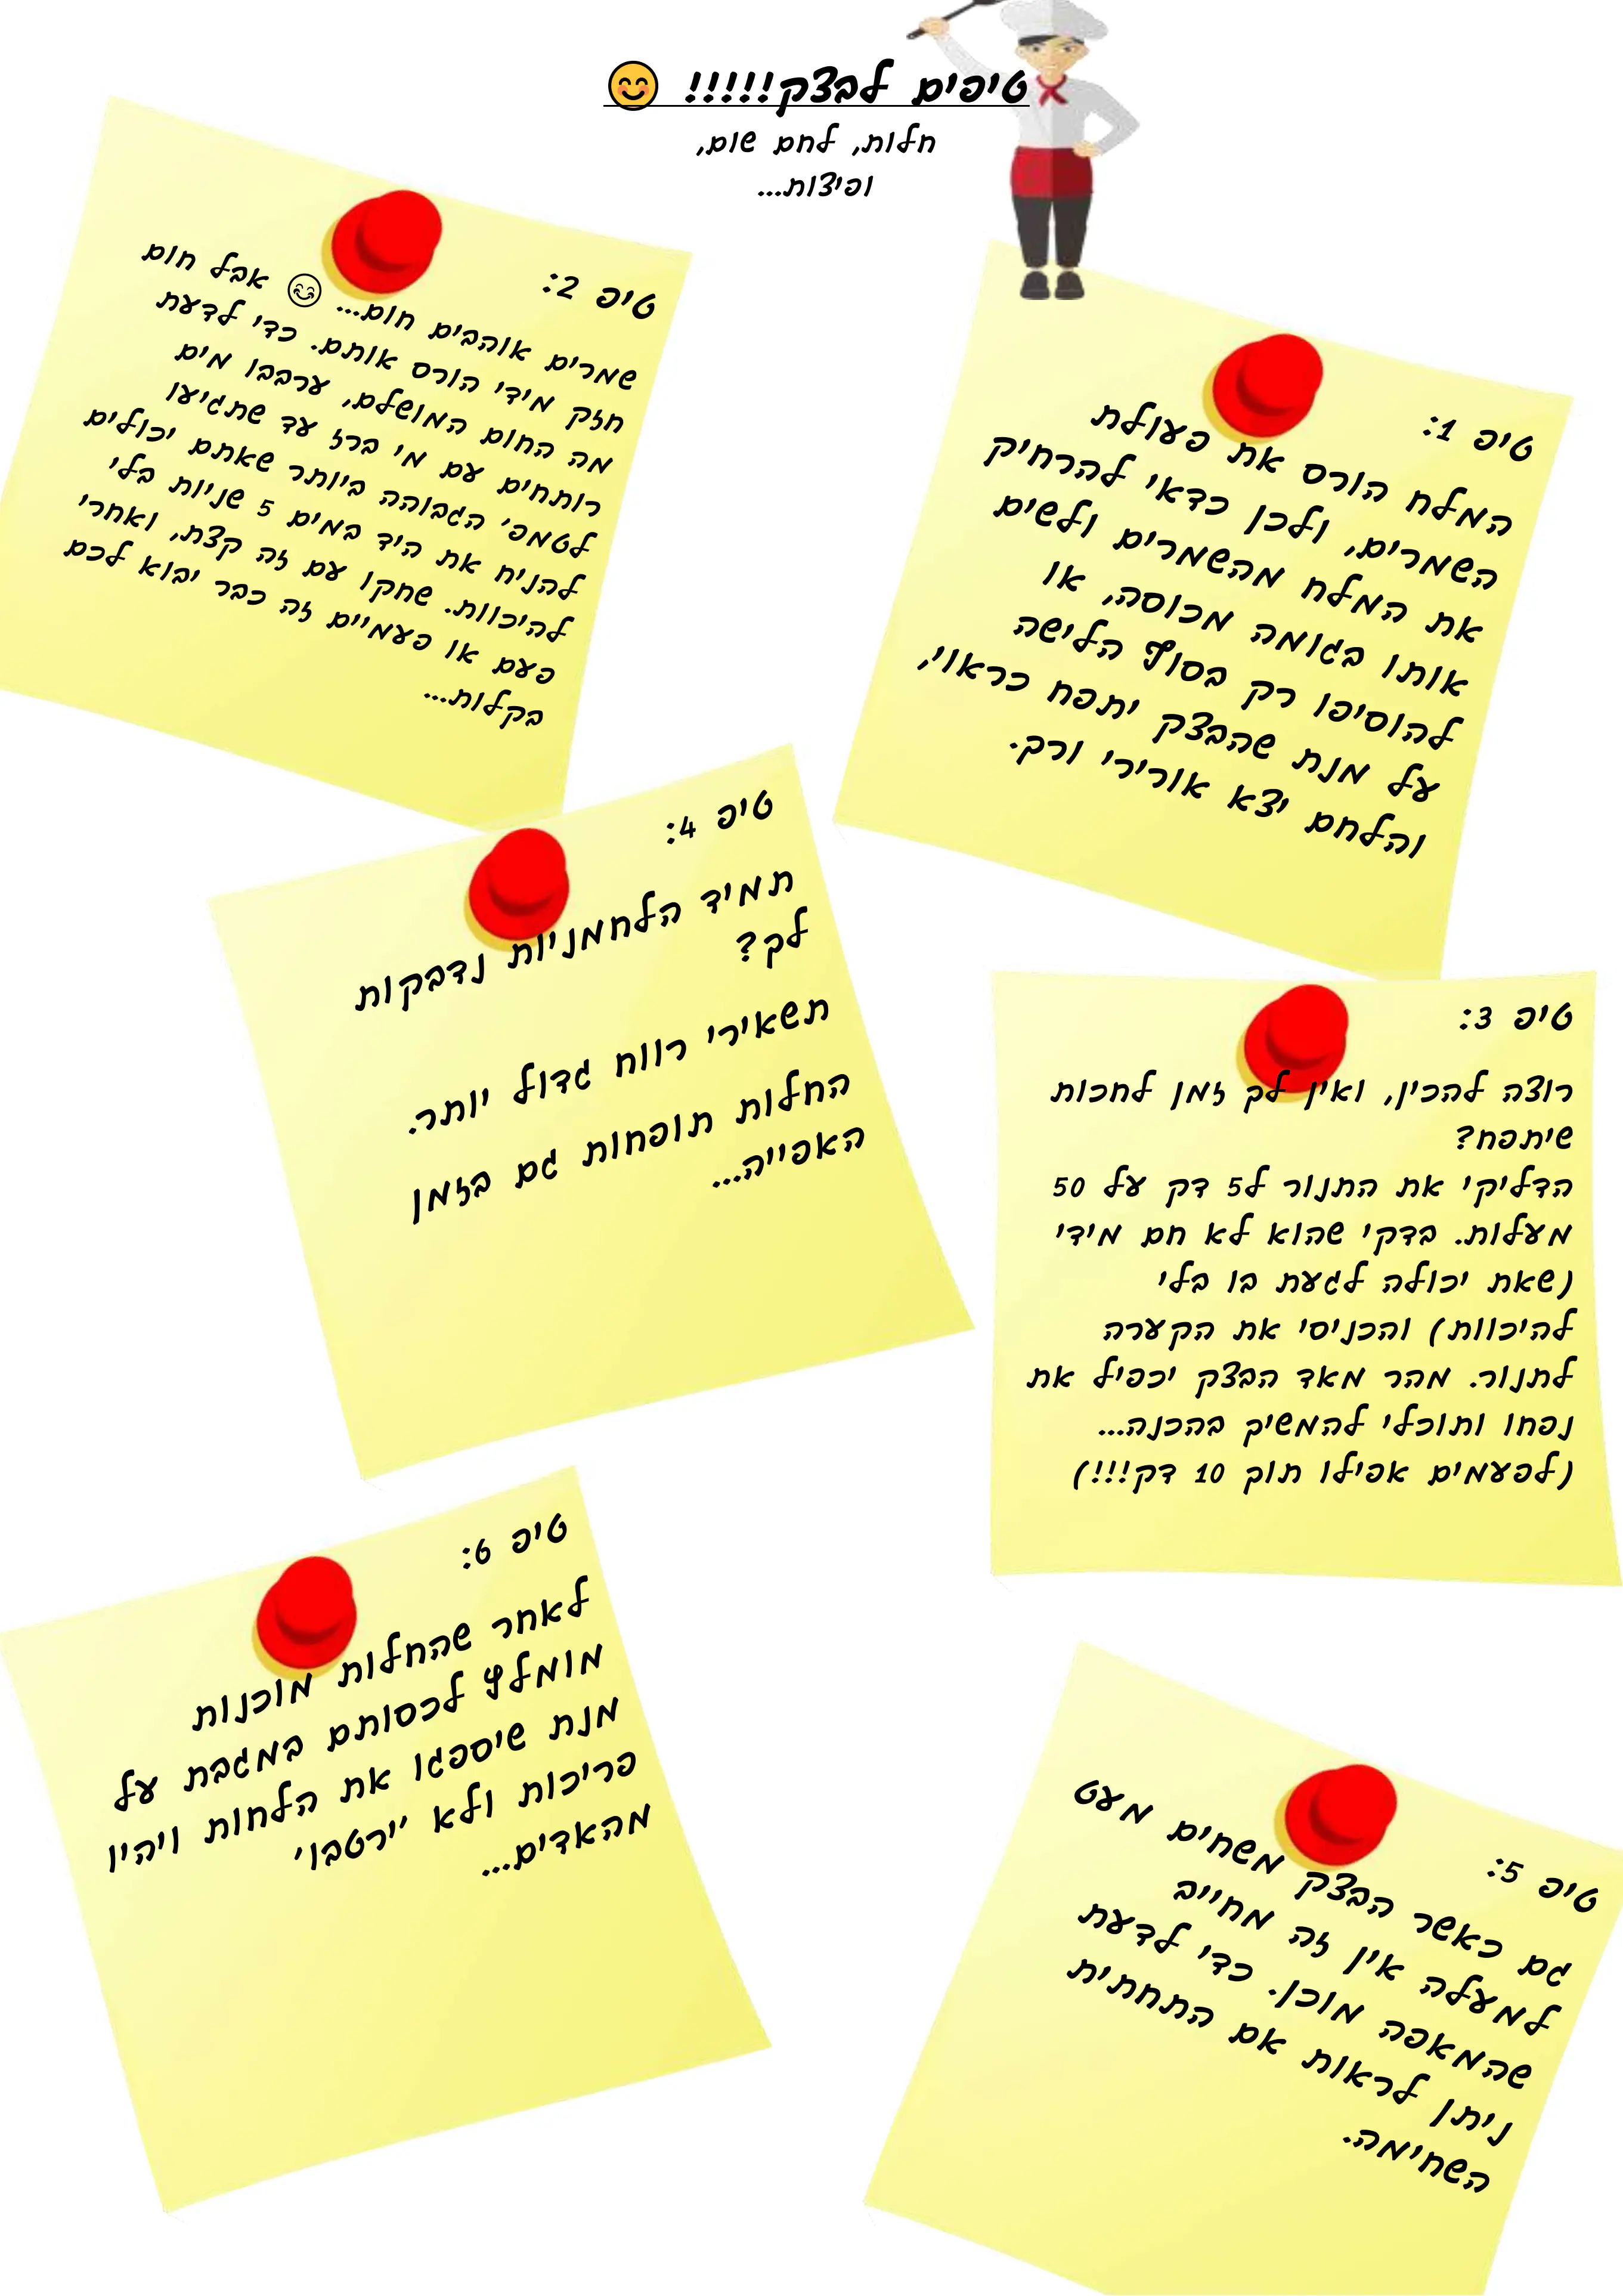 טיפים לבצק!!!!! 😊
חלות, לחם שום,
ופיצות...
טיפ 1:
המלח הורס את פעולת
השמרים, ולכן כדאי להרחיק
את המלח מהשמרים ולשים
אותו בגומה מכוסה, או
להוסיפו רק בסוף הלישה
על מנת שהבצק יתפח כראוי,
והלחם יצא אורירי ורך.
טיפ 2:
שמרים אוהבים חום... 😊 אבל חום
חזק מידי הורס אותם. כדי לדעת
מה החום המושלם, ערבבו מים
רותחים עם מי ברז עד שתגיעו
לטמפ' הגבוהה ביותר שאתם יכולים
להניח את היד במים 5 שניות בלי
להיכוות. שחקו עם זה קצת, ואחרי
פעם או פעמיים זה כבר יבוא לכם
בקלות...
טיפ 3:
רוצה להכין, ואין לך זמן לחכות
שיתפח?
הדליקי את התנור ל5 דק על 50
מעלות. בדקי שהוא לא חם מידי
(שאת יכולה לגעת בו בלי
להיכוות) והכניסי את הקערה
לתנור. מהר מאד הבצק יכפיל את
נפחו ותוכלי להמשיך בהכנה...
(לפעמים אפילו תוך 10 דק!!!)
טיפ 4:
תמיד הלחמניות נדבקות
לך?
תשאירי רווח גדול יותר.
החלות תופחות גם בזמן
האפייה...
טיפ 5:
גם כאשר הבצק משחים מעט
למעלה אין זה מחייב
שהמאפה מוכן. כדי לדעת
ניתן לראות אם התחתית
השחימה.
טיפ 6:
לאחר שהחלות מוכנות
מומלץ לכסותם במגבת על
מנת שיספגו את הלחות ויהיו
פריכות ולא 'ירטבו'
מהאדים...